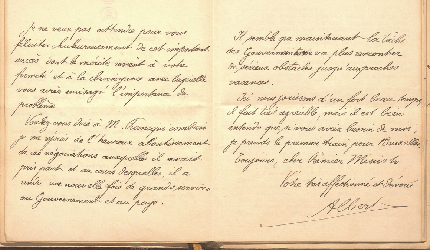 Je ne veux pas attendre pour vous
féliciter chaleureusement de cet important
succès dont le mérite revient à votre
fermeté et à la clairvoyance avec laquelle
vous avez envisagé l'importance du
problème.
Voulez-vous dire à M. Francqui combien
je me réjouis de l'heureux aboutissement
de négociations auxquelles il a
pris part et au cours desquelles, il a
rendu une nouvelle fois de grands services
au Gouvernement et au pays.
Il semble que maintenant la tâche
du Gouvernement ne va plus rencontrer
de sérieux obstacles jusqu'aux prochaines
vacances.
Ici nous jouissons d'un fort beau temps,
il fait très agréable, mais il est bien
entendu que, si vous avez besoin de moi,
je prends le premier train pour Bruxelles.
Toujours, cher Premier Ministre
Votre très affectionné et dévoué
Albert